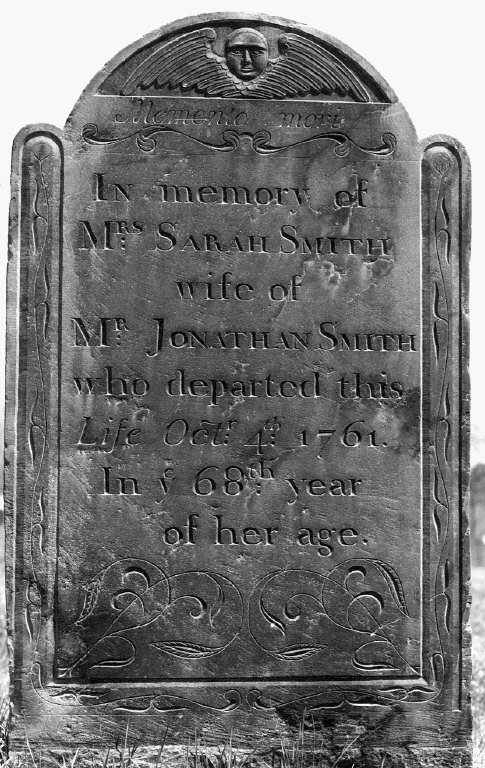 Memento mori
In memory of
Mrs Sarah Smith
wife of
Mr Jonathan Smith
who departed this
Life Octr 4th 1761.
In ye 68th year
of her age.